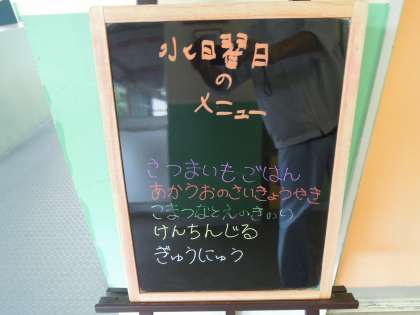 水曜日
の
メニュー
さつまいもごはん
あかうおのさいきょうやき
こまつなとえのき
けんちんじる
ぎゅうにゅう